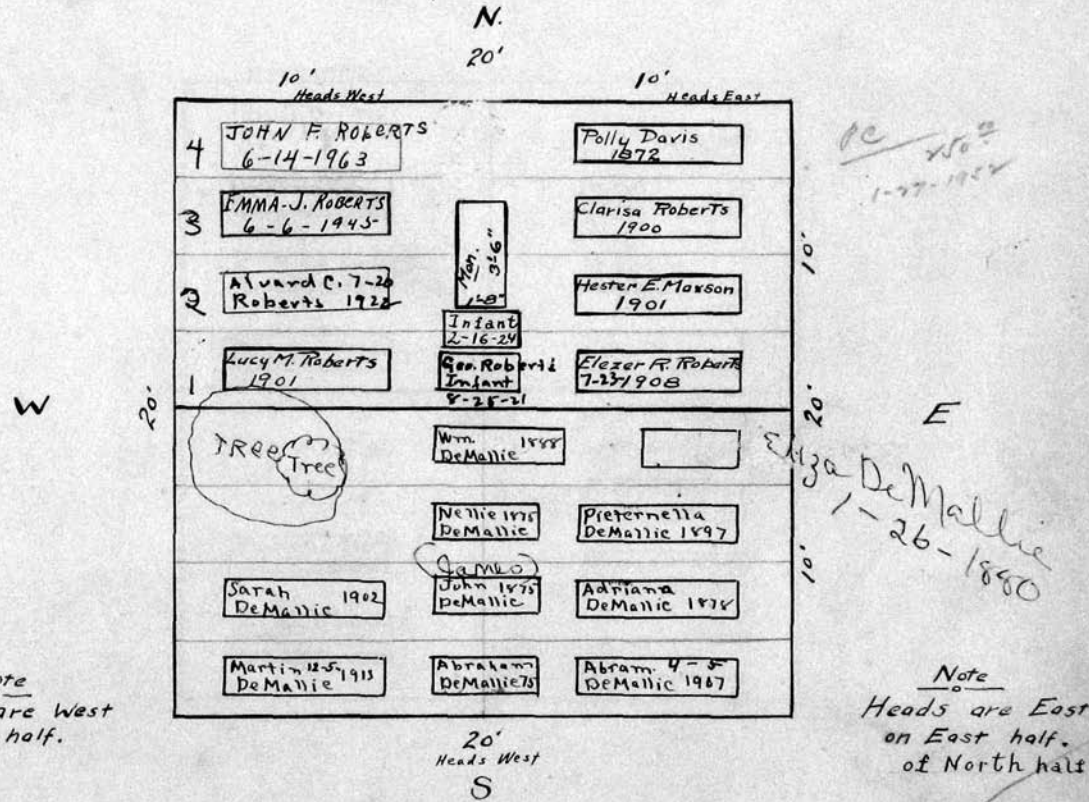 N.
20'
10'
Heads West
10'
Heads East
4
JOHN F. ROBERTS
6-14-1963
Polly Davis
1872
PC
250 00
1-27-1952
3
EMMA-J. ROBERTS
6-6-1945
Mon.
3'6"
1'-8"
Clarisa Roberts
1900
10'
2
Alvard C. 7-20
Roberts 1922
Hester E. Maxson
1901
Infant
2-16-24
1
Lucy M. Roberts
1901
Geo. Roberts
Infant
8-25-21
Elezer R. Roberts
7-23-1908
W
20'
20'
E
TREE
Tree
Wm. 1888
DeMallie
Eliza DeMallie
1-26-1880
Nellie 1875
DeMallie
Pieternella
DeMallie 1897
10'
Sarah 1902
DeMallie
(James)
John 1875
DeMallie
Adriana
DeMallie 1878
Martin 12-5-1913
DeMallie
Abraham
DeMallie 75
Abram. 4-5
DeMallie 1907
ote
are West
half.
Note
Heads are East
on East half.
of North half
20'
Heads West
S